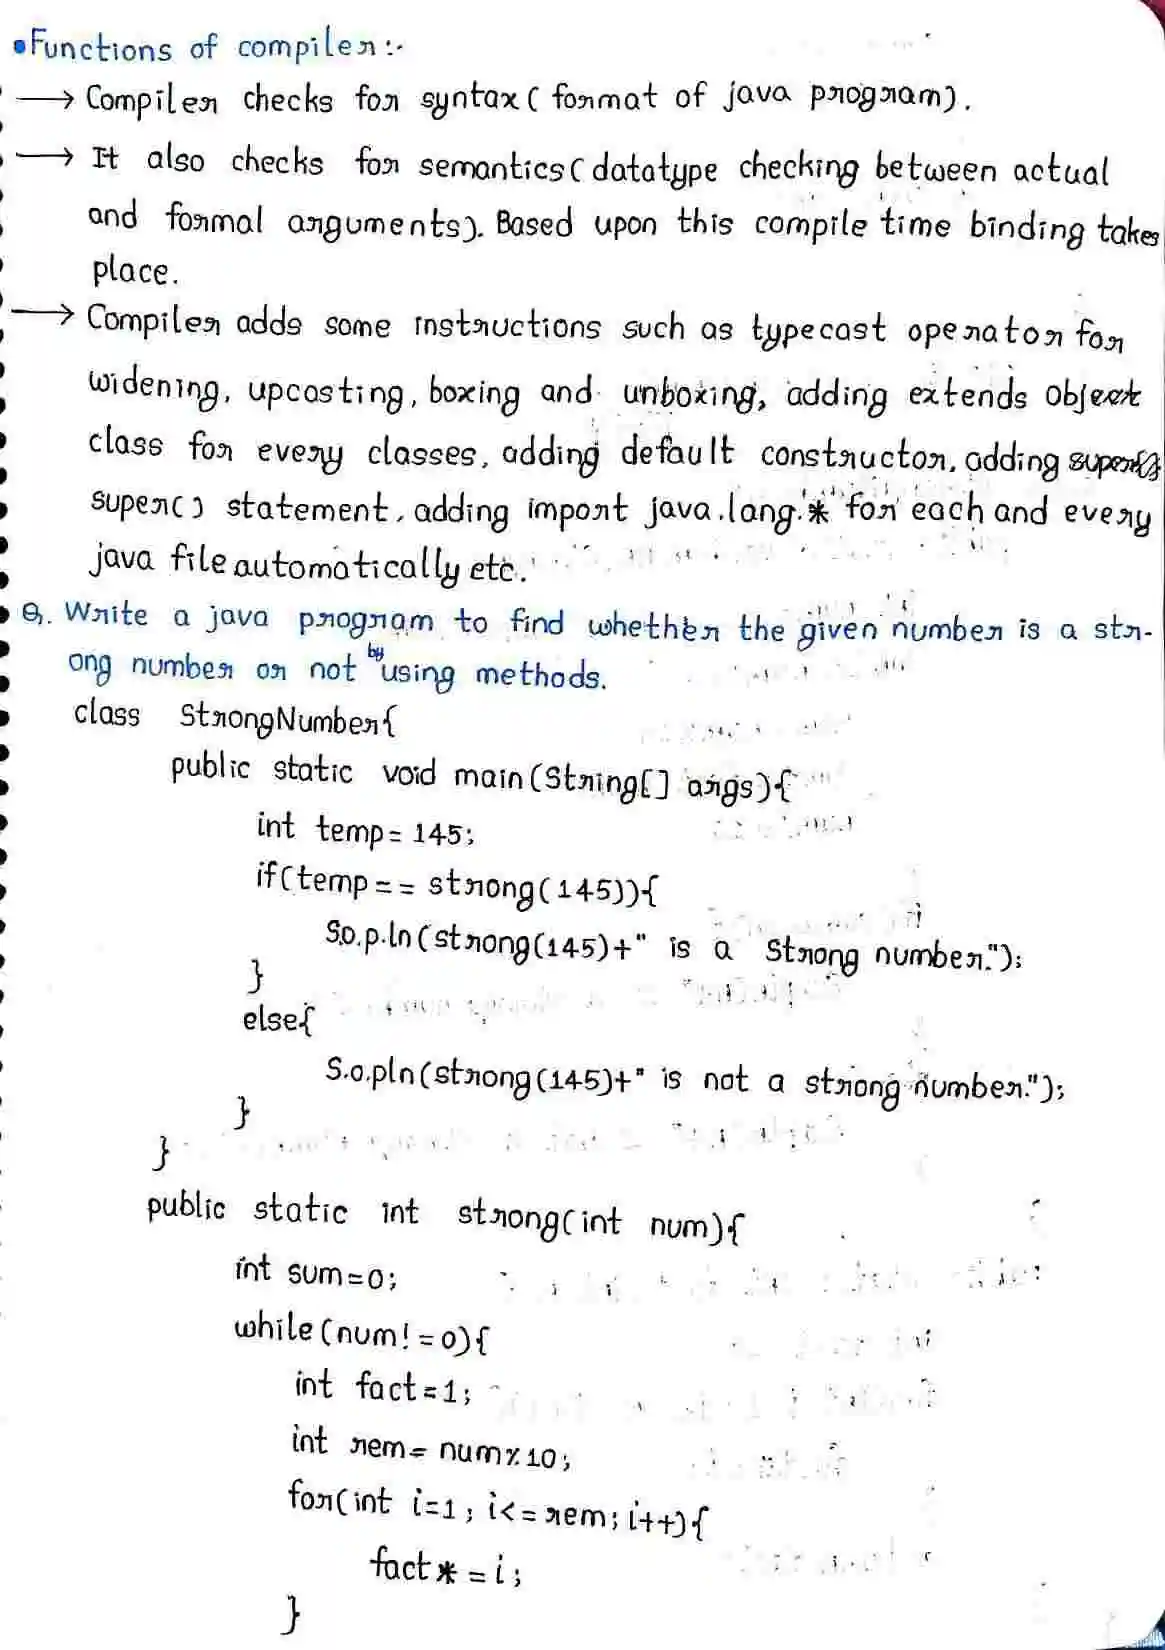 •Functions of compiler:-
→ Compiler checks for syntax( format of java program).
→ It also checks for semantics( datatype checking between actual
and formal arguments). Based upon this compile time binding takes
place.
→ Compiler adds some instructions such as typecast operator for
widening, upcasting, boxing and unboxing, adding extends Object
class for every classes, adding default constructor, adding
super() statement, adding import java.lang.* for each and every
java file automatically etc.
Q. Write a java program to find whether the given number is a str-
ong number or not by using methods.
class StrongNumber{
public static void main(String[] args){
int temp= 145;
if(temp== strong(145)){
S.o.p.ln(strong(145)+" is a Strong number.");
}
else{
S.o.pln(strong(145)+" is not a strong number.");
}
}
public static int strong(int num){
int sum=0;
while(num!=0){
int fact=1;
int rem= num%10;
for(int i=1; i<=rem; i++){
fact*=i;
}